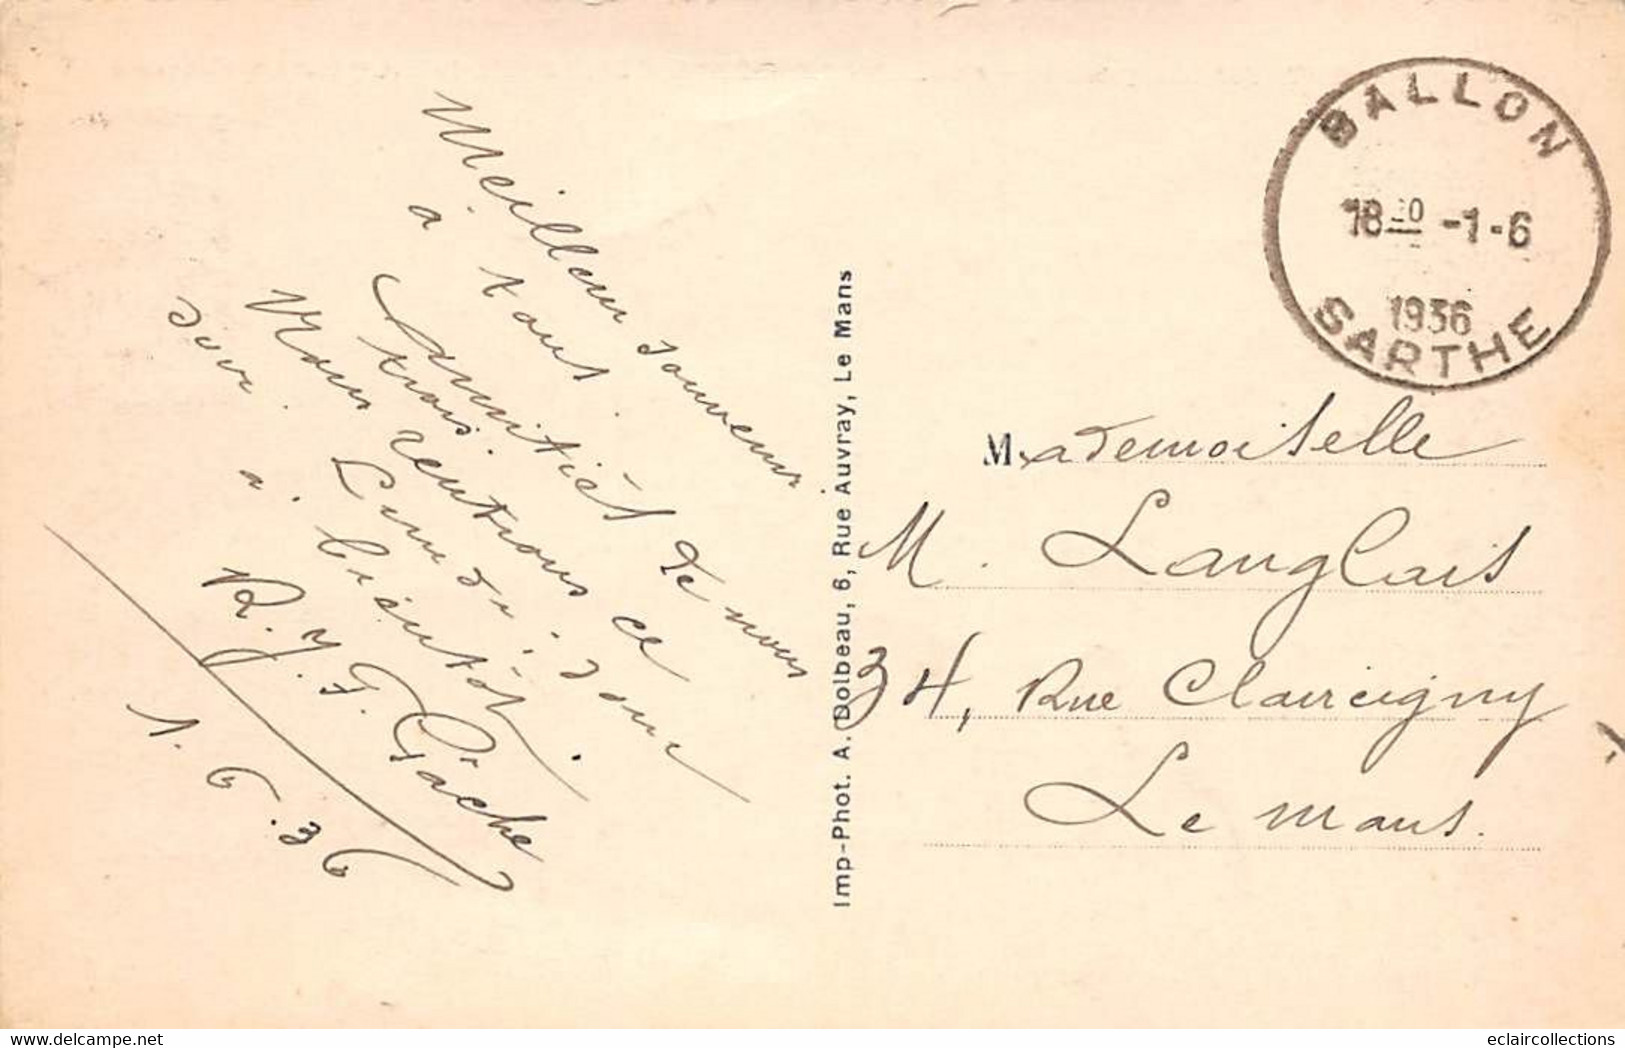 Meilleur souvenir
à tous.
Amitiés de nous
trois.
Nous rentrons ce
soir. Lundi. donc
a. bientôt.
R. J. F. Gâche
1.6.36
Imp-Phot. A. Dolbeau, 6, Rue Auvray, Le Mans
BALLON
18 -1-6
1936
SARTHE
Mademoiselle
M. Langlais
34, Rue Claircigny
Le mans.
eclaircollections
delcampe.net